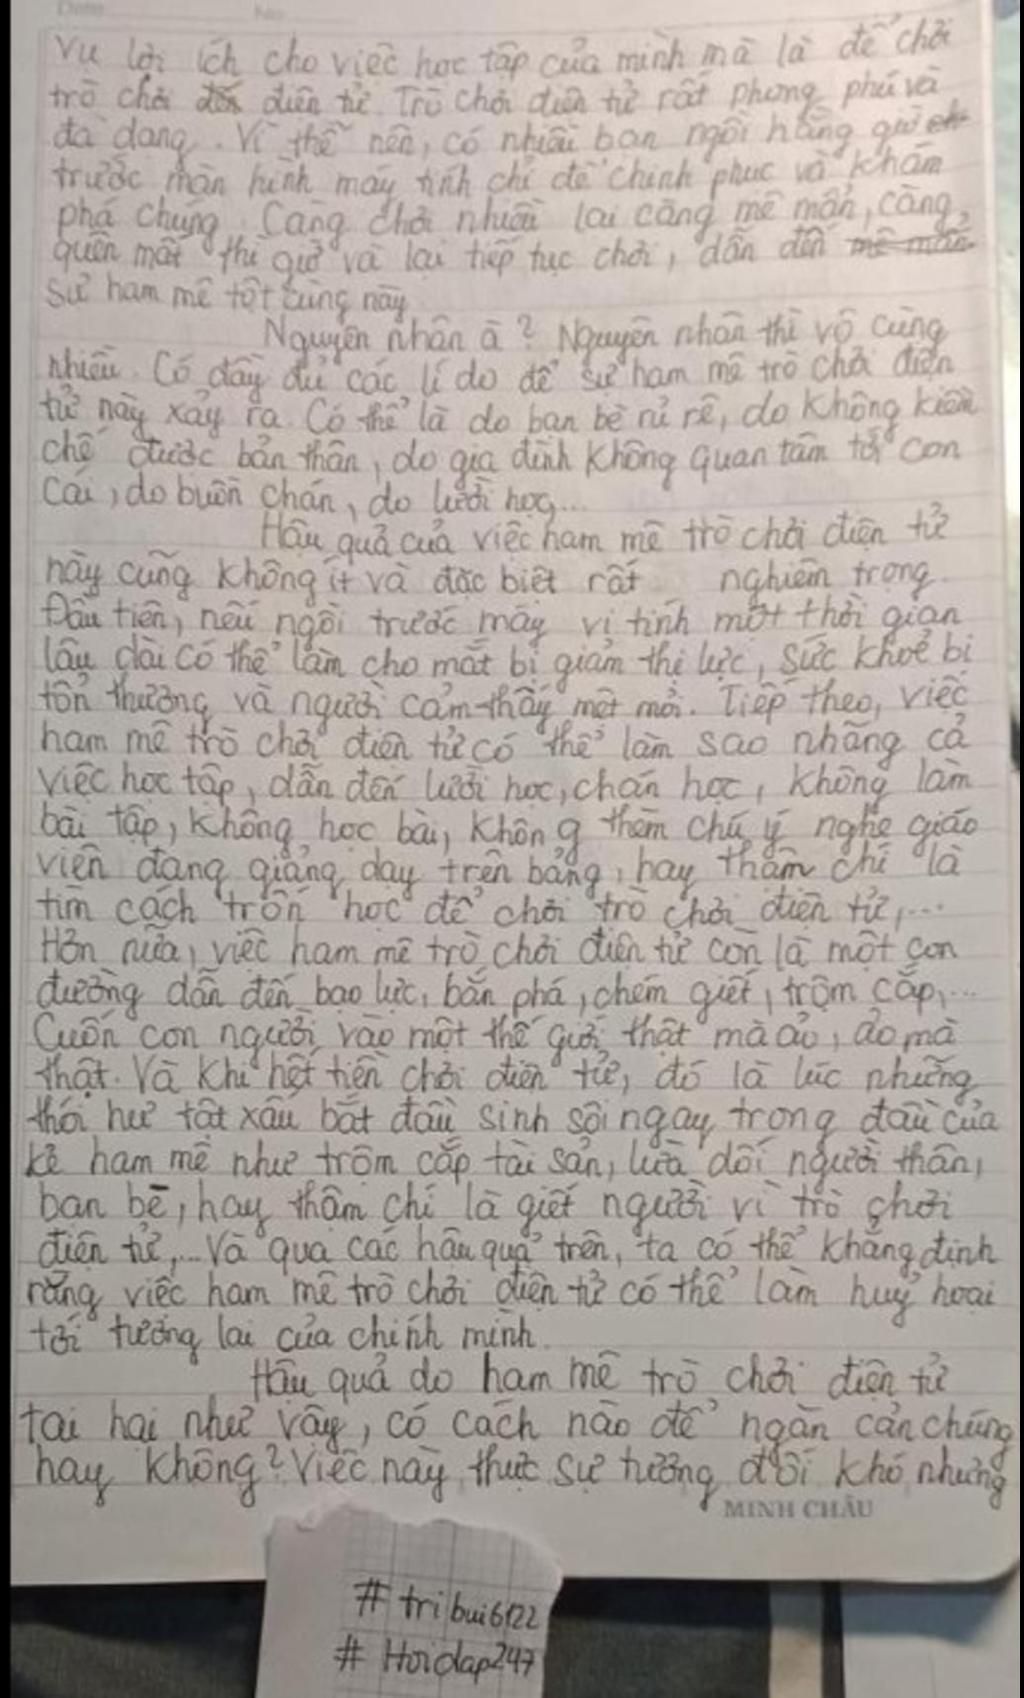 vụ lợi ích cho việc học tập của mình mà là để chơi
trò chơi điện tử. Trò chơi điện tử rất phong phú và
đa dạng. Vì thế nên, có nhiều bạn ngồi hàng giờ
trước màn hình máy tính chỉ để chinh phục và khám
phá chúng. Càng chơi nhiều lại càng mê mẩn, càng
quên mất thì giờ và lại tiếp tục chơi, dẫn đến mê mẩn
sự ham mê tột cùng này.
Nguyên nhân à? Nguyên nhân thì vô cùng
nhiều. Có đầy đủ các lí do để sự ham mê trò chơi điện
tử này xảy ra. Có thể là do bạn bè rủ rê, do không kiềm
chế được bản thân, do gia đình không quan tâm tới con
cái, do buồn chán, do lười học...
Hậu quả của việc ham mê trò chơi điện tử
này cũng không ít và đặc biệt rất nghiêm trọng.
Đầu tiên, nếu ngồi trước máy vi tính một thời gian
lâu dài có thể làm cho mắt bị giảm thị lực, sức khoẻ bị
tổn thương và người cảm thấy mệt mỏi. Tiếp theo, việc
ham mê trò chơi điện tử có thể làm sao nhãng cả
việc học tập, dẫn đến lười học, chán học, không làm
bài tập, không học bài, không thèm chú ý nghe giáo
viên đang giảng dạy trên bảng, hay thậm chí là
tìm cách trốn học để chơi trò chơi điện tử,...
Hơn nữa, việc ham mê trò chơi điện tử còn là một con
đường dẫn đến bạo lực, bắn phá, chém giết, trộm cắp,...
Cuốn con người vào một thế giới thật mà ảo, ảo mà
thật. Và khi hết tiền chơi điện tử, đó là lúc những
thói hư tật xấu bắt đầu sinh sôi ngay trong đầu của
kẻ ham mê như trộm cắp tài sản, lừa dối người thân,
bạn bē, hay thậm chí là giết người vì trò chơi
điện tử,... Và qua các hậu quả trên, ta có thể khẳng định
rằng việc ham mê trò chơi điện tử có thể làm huỷ hoại
tới tương lai của chính mình.
Hậu quả do ham mê trò chơi điện tử
tai hại như vậy, có cách nào để ngăn cản chúng
hay không? Việc này thực sự tương đối khó nhưng
MINH CHÂU
# tribui6122
# Hoidap247